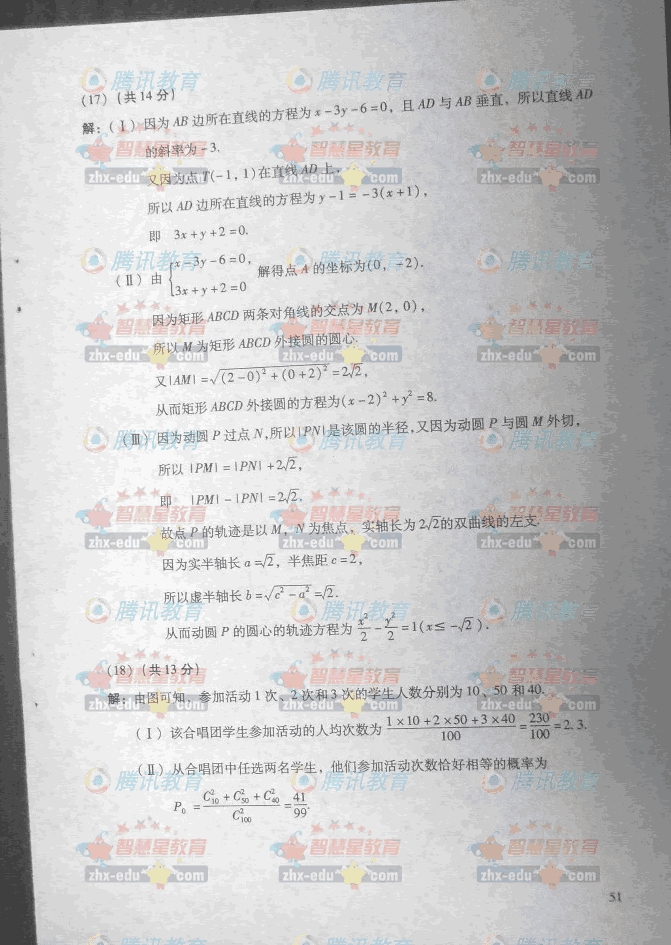 (17)(共14分)
解:(Ⅰ)因为AB边所在直线的方程为x-3y-6=0,且AD与AB垂直,所以直线AD
的斜率为-3.
又因为点T(-1,1)在直线AD上,
所以AD边所在直线的方程为y-1=-3(x+1),
即 3x+y+2=0.
(Ⅱ)由{x-3y-6=0, 3x+y+2=0 解得点A的坐标为(0,-2).
因为矩形ABCD两条对角线的交点为M(2,0),
所以M为矩形ABCD外接圆的圆心.
又|AM|=√((2-0)²+(0+2)²)=2√2,
从而矩形ABCD外接圆的方程为(x-2)²+y²=8.
(Ⅲ)因为动圆P过点N,所以|PN|是该圆的半径,又因为动圆P与圆M外切,
所以 |PM|=|PN|+2√2,
即 |PM|-|PN|=2√2.
故点P的轨迹是以M,N为焦点,实轴长为2√2的双曲线的左支.
因为实半轴长a=√2,半焦距c=2,
所以虚半轴长b=√(c²-a²)=√2.
从而动圆P的圆心的轨迹方程为x²/2-y²/2=1(x≤-√2).
(18)(共13分)
解:由图可知,参加活动1次、2次和3次的学生人数分别为10、50和40.
(Ⅰ)该合唱团学生参加活动的人均次数为(1×10+2×50+3×40)/100=230/100=2.3.
(Ⅱ)从合唱团中任选两名学生,他们参加活动次数恰好相等的概率为
P₀=(C²₁₀+C²₅₀+C²₄₀)/C²₁₀₀=41/99.
51
腾讯教育
智慧星教育
zhx-edu com